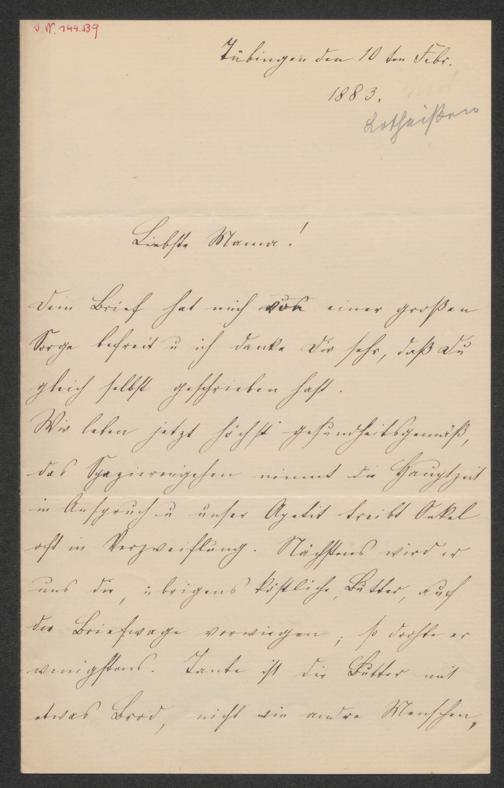 J. N. 144.239
Tübingen den 10ten Febr.
1883.
Lotheißen
Liebste Mama!
Dein Brief hat mich von einer großen
Sorge befreit u ich danke Dir sehr, daß Du
gleich selbst geschrieben hast.
Wir leben jetzt höchst gesundheitsgemäß,
das Spazierengehen nimmt die Hauptzeit
in Anspruch u unser Apetit treibt Onkel
oft in Verzweiflung. Nächstens wird er
uns die, übrigens köstliche, Butter, auf
der Briefwage vorwiegen, so drohte er
wenigstens. Tante ißt die Butter mit
etwas Brod, nicht wie andre Menschen,